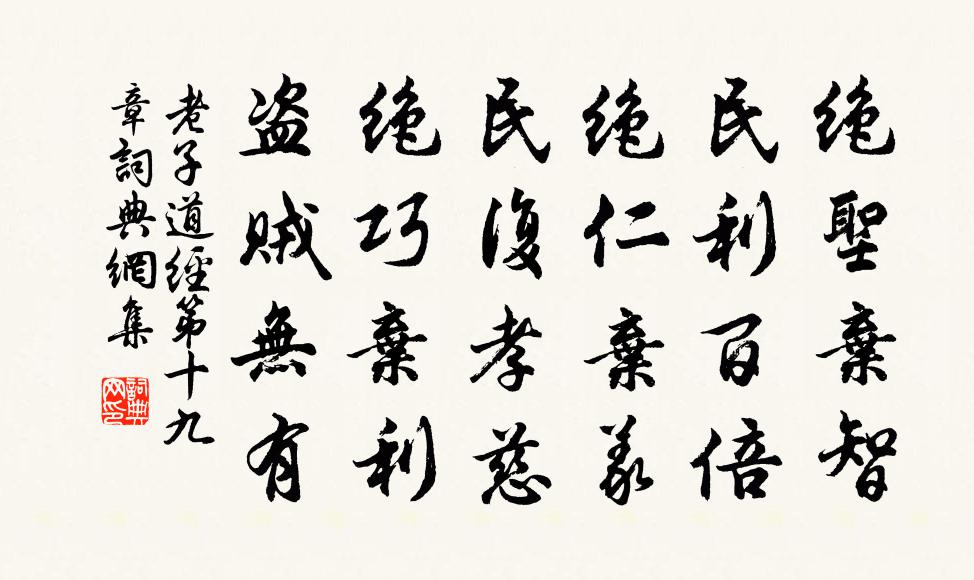 絶聖棄智
民利百倍
絶仁棄義
民復孝慈
絶巧棄利
盗賊無有
老子道經第十九
章詞典網集
詞典
网印